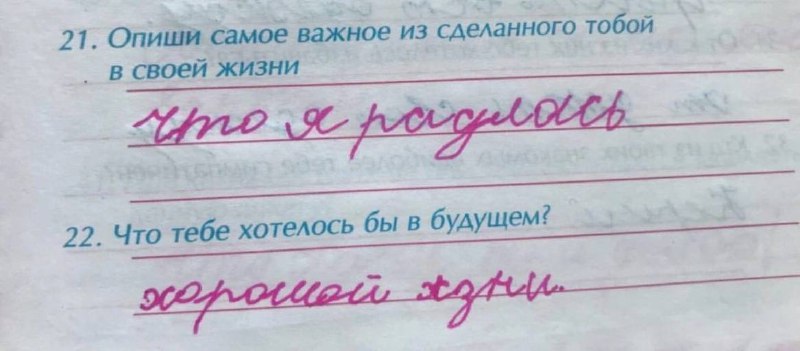 21. Опиши самое важное из сделанного тобой
в своей жизни
что я радлась
22. Что тебе хотелось бы в будущем?
хорошей жзни.